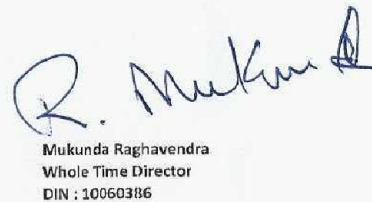 R. Mukund
Mukunda Raghavendra
Whole Time Director
DIN : 10060386